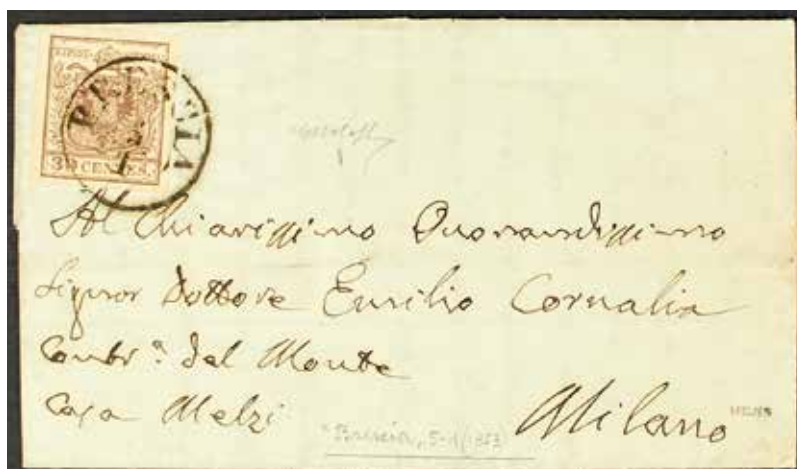 30 CENTES.
Al Chiarissimo Onorandissimo
Signor Dottore Emilio Cornalia
Contr.ª del Monte
Casa Melzi
Milano
Brescia, 5-1(1853)